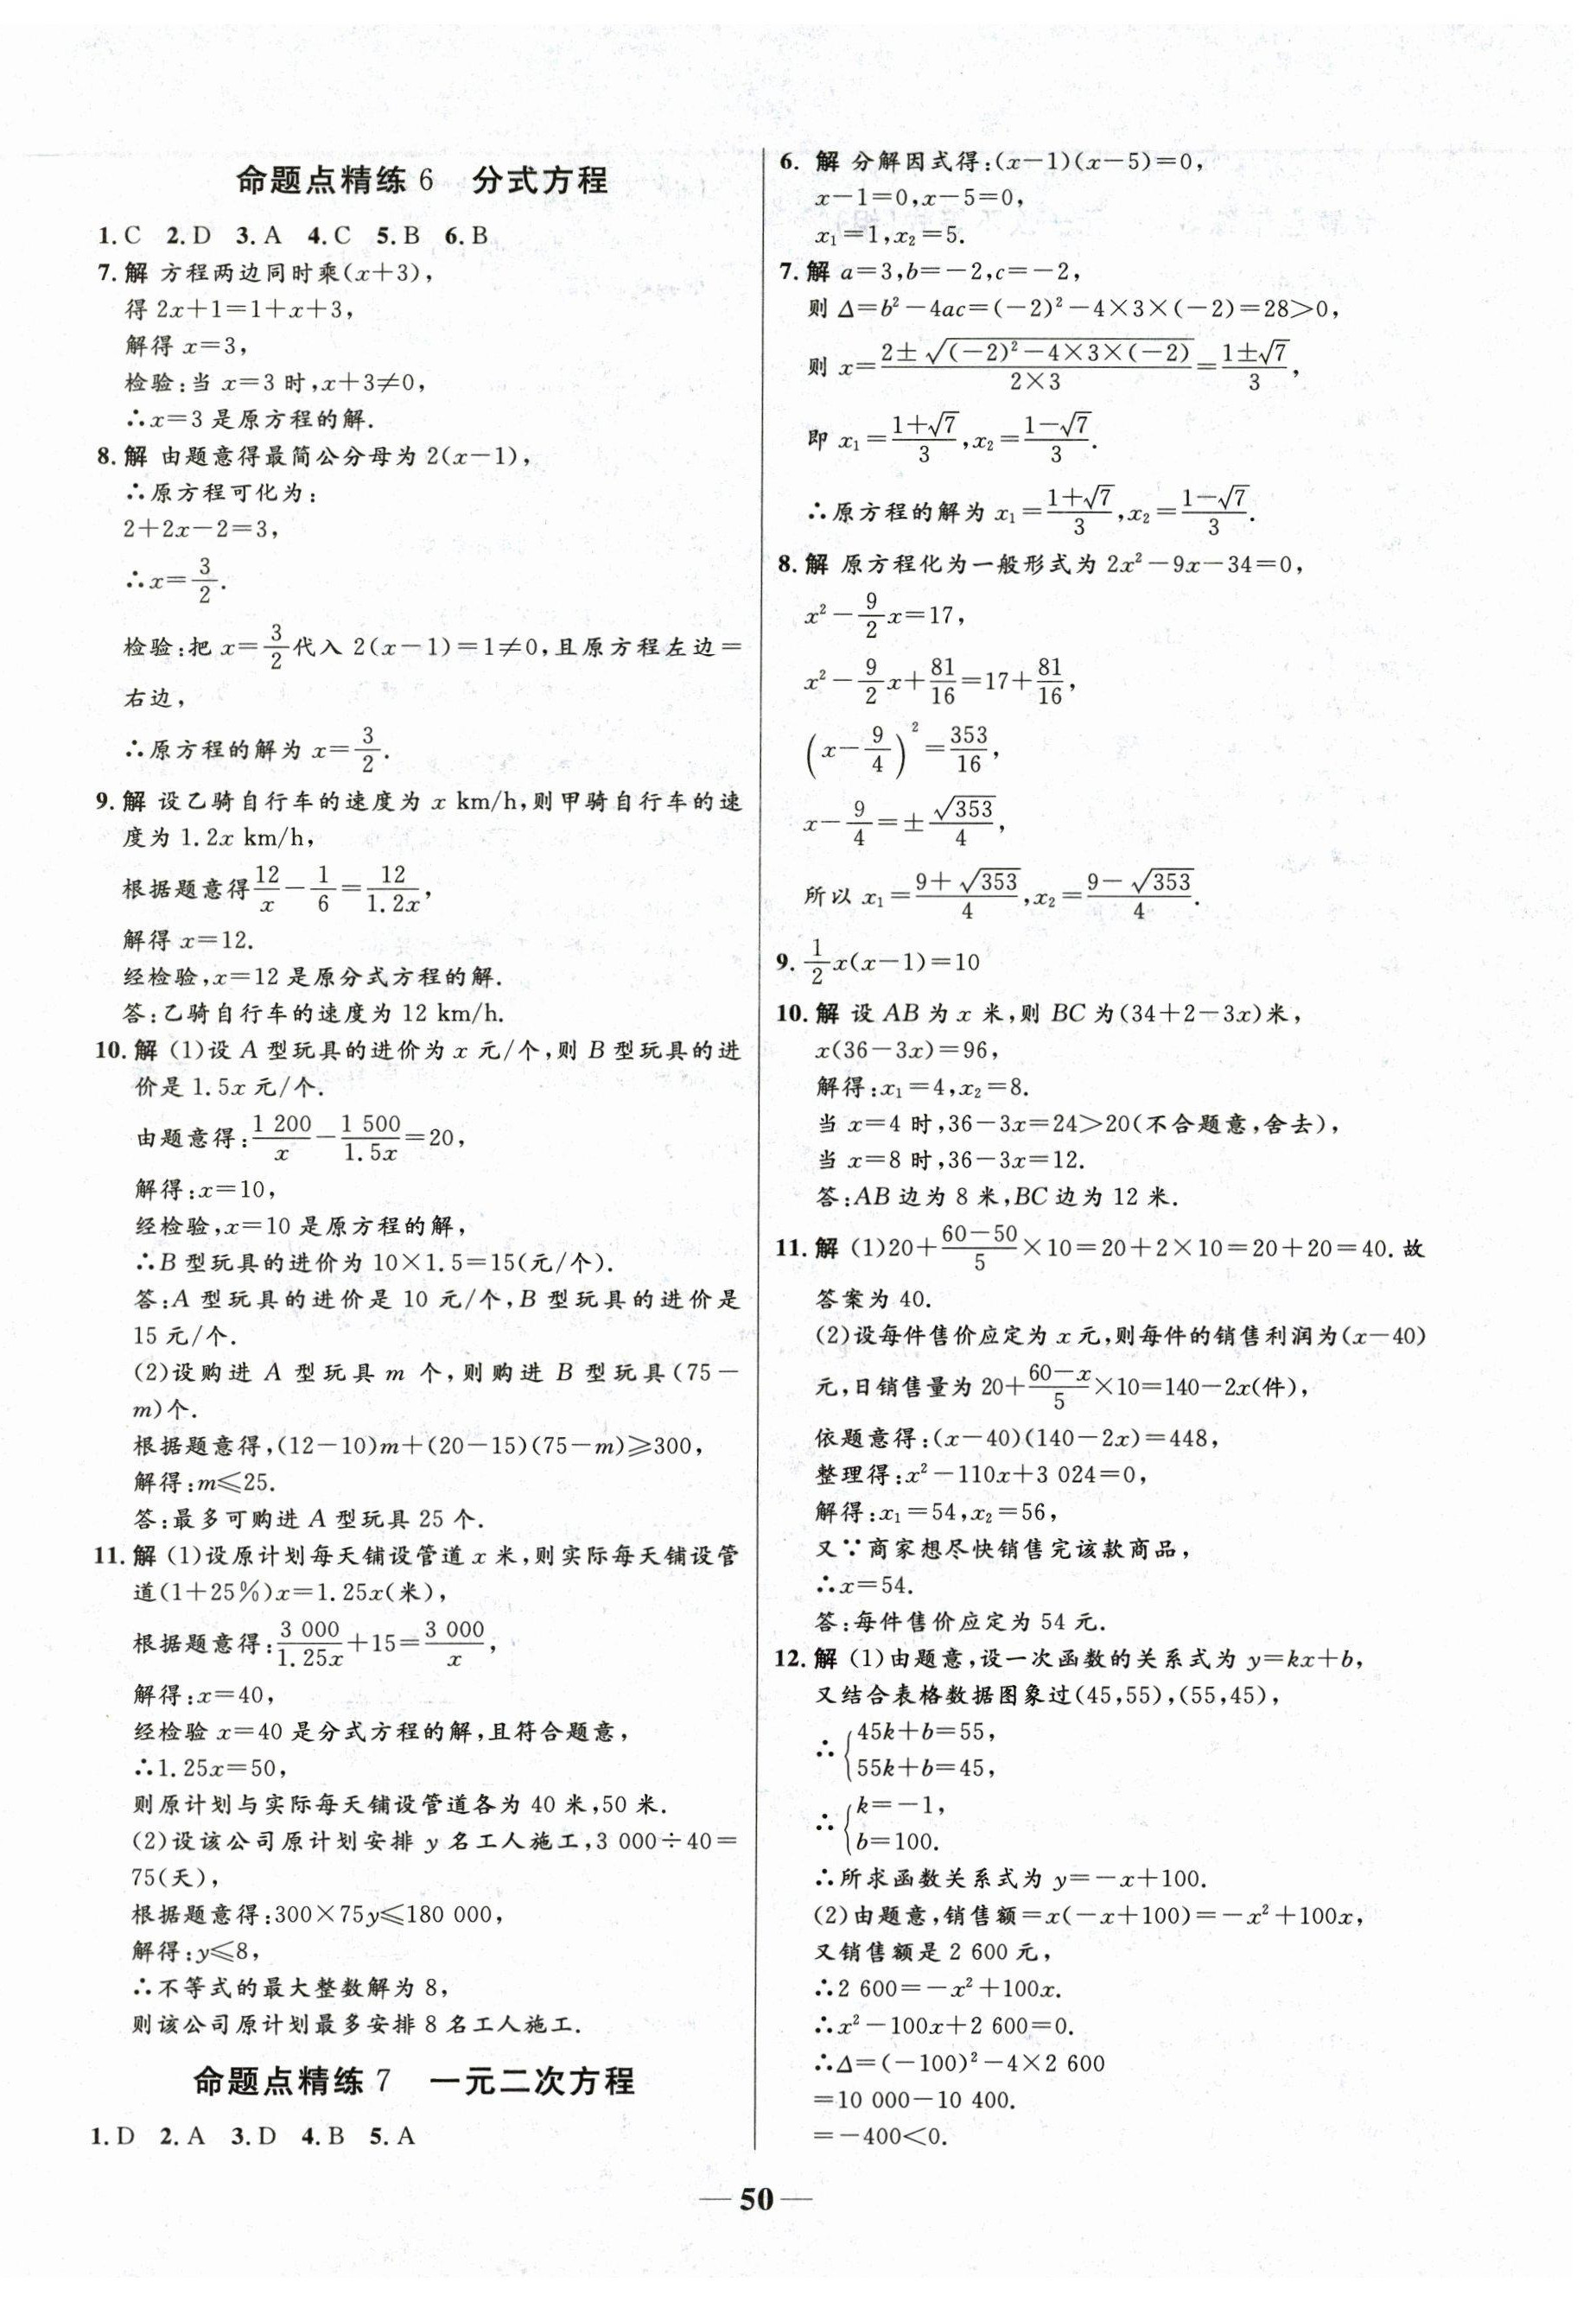 命题点精练6 分式方程
1.C 2.D 3.A 4.C 5.B 6.B
7.解 方程两边同时乘(x+3),
得 2x+1=1+x+3,
解得 x=3,
检验:当 x=3 时,x+3≠0,
∴x=3 是原方程的解.
8.解 由题意得最简公分母为 2(x-1),
∴原方程可化为:
2+2x-2=3,
∴x=3/2.
检验:把 x=3/2代入 2(x-1)=1≠0,且原方程左边=
右边,
∴原方程的解为 x=3/2.
9.解 设乙骑自行车的速度为 x km/h,则甲骑自行车的速
度为 1.2x km/h,
根据题意得12/x-1/6=12/1.2x,
解得 x=12.
经检验,x=12 是原分式方程的解.
答:乙骑自行车的速度为 12 km/h.
10.解 (1)设 A 型玩具的进价为 x 元/个,则 B 型玩具的进
价是 1.5x 元/个.
由题意得:1 200/x-1 500/1.5x=20,
解得:x=10,
经检验,x=10 是原方程的解,
∴B 型玩具的进价为 10×1.5=15(元/个).
答:A 型玩具的进价是 10 元/个,B 型玩具的进价是
15 元/个.
(2)设购进 A 型玩具 m 个,则购进 B 型玩具(75-
m)个.
根据题意得,(12-10)m+(20-15)(75-m)≥300,
解得:m≤25.
答:最多可购进 A 型玩具 25 个.
11.解 (1)设原计划每天铺设管道 x 米,则实际每天铺设管
道(1+25%)x=1.25x(米),
根据题意得:3 000/1.25x+15=3 000/x,
解得:x=40,
经检验 x=40 是分式方程的解,且符合题意,
∴1.25x=50,
则原计划与实际每天铺设管道各为 40 米,50 米.
(2)设该公司原计划安排 y 名工人施工,3 000÷40=
75(天),
根据题意得:300×75y≤180 000,
解得:y≤8,
∴不等式的最大整数解为 8,
则该公司原计划最多安排 8 名工人施工.
命题点精练7 一元二次方程
1.D 2.A 3.D 4.B 5.A
6. 解 分解因式得:(x-1)(x-5)=0,
x-1=0,x-5=0,
x₁=1,x₂=5.
7.解 a=3,b=-2,c=-2,
则 Δ=b²-4ac=(-2)²-4×3×(-2)=28>0,
则 x=(2±√((-2)²-4×3×(-2)))/(2×3)=(1±√7)/3,
即 x₁=(1+√7)/3,x₂=(1-√7)/3.
∴原方程的解为 x₁=(1+√7)/3,x₂=(1-√7)/3.
8.解 原方程化为一般形式为 2x²-9x-34=0,
x²-9/2x=17,
x²-9/2x+81/16=17+81/16,
(x-9/4)²=353/16,
x-9/4=±√353/4,
所以 x₁=(9+√353)/4,x₂=(9-√353)/4.
9. 1/2x(x-1)=10
10.解 设 AB 为 x 米,则 BC 为(34+2-3x)米,
x(36-3x)=96,
解得:x₁=4,x₂=8.
当 x=4 时,36-3x=24>20(不合题意,舍去),
当 x=8 时,36-3x=12.
答:AB 边为 8 米,BC 边为 12 米.
11.解 (1)20+(60-50)/5×10=20+2×10=20+20=40.故
答案为 40.
(2)设每件售价应定为 x 元,则每件的销售利润为(x-40)
元,日销售量为 20+(60-x)/5×10=140-2x(件),
依题意得:(x-40)(140-2x)=448,
整理得:x²-110x+3 024=0,
解得:x₁=54,x₂=56,
又∵商家想尽快销售完该款商品,
∴x=54.
答:每件售价应定为 54 元.
12.解 (1)由题意,设一次函数的关系式为 y=kx+b,
又结合表格数据图象过(45,55),(55,45),
∴{45k+b=55,
55k+b=45,
∴{k=-1,
b=100.
∴所求函数关系式为 y=-x+100.
(2)由题意,销售额=x(-x+100)=-x²+100x,
又销售额是 2 600 元,
∴2 600=-x²+100x.
∴x²-100x+2 600=0.
∴Δ=(-100)²-4×2 600
=10 000-10 400.
=-400<0.
— 50 —